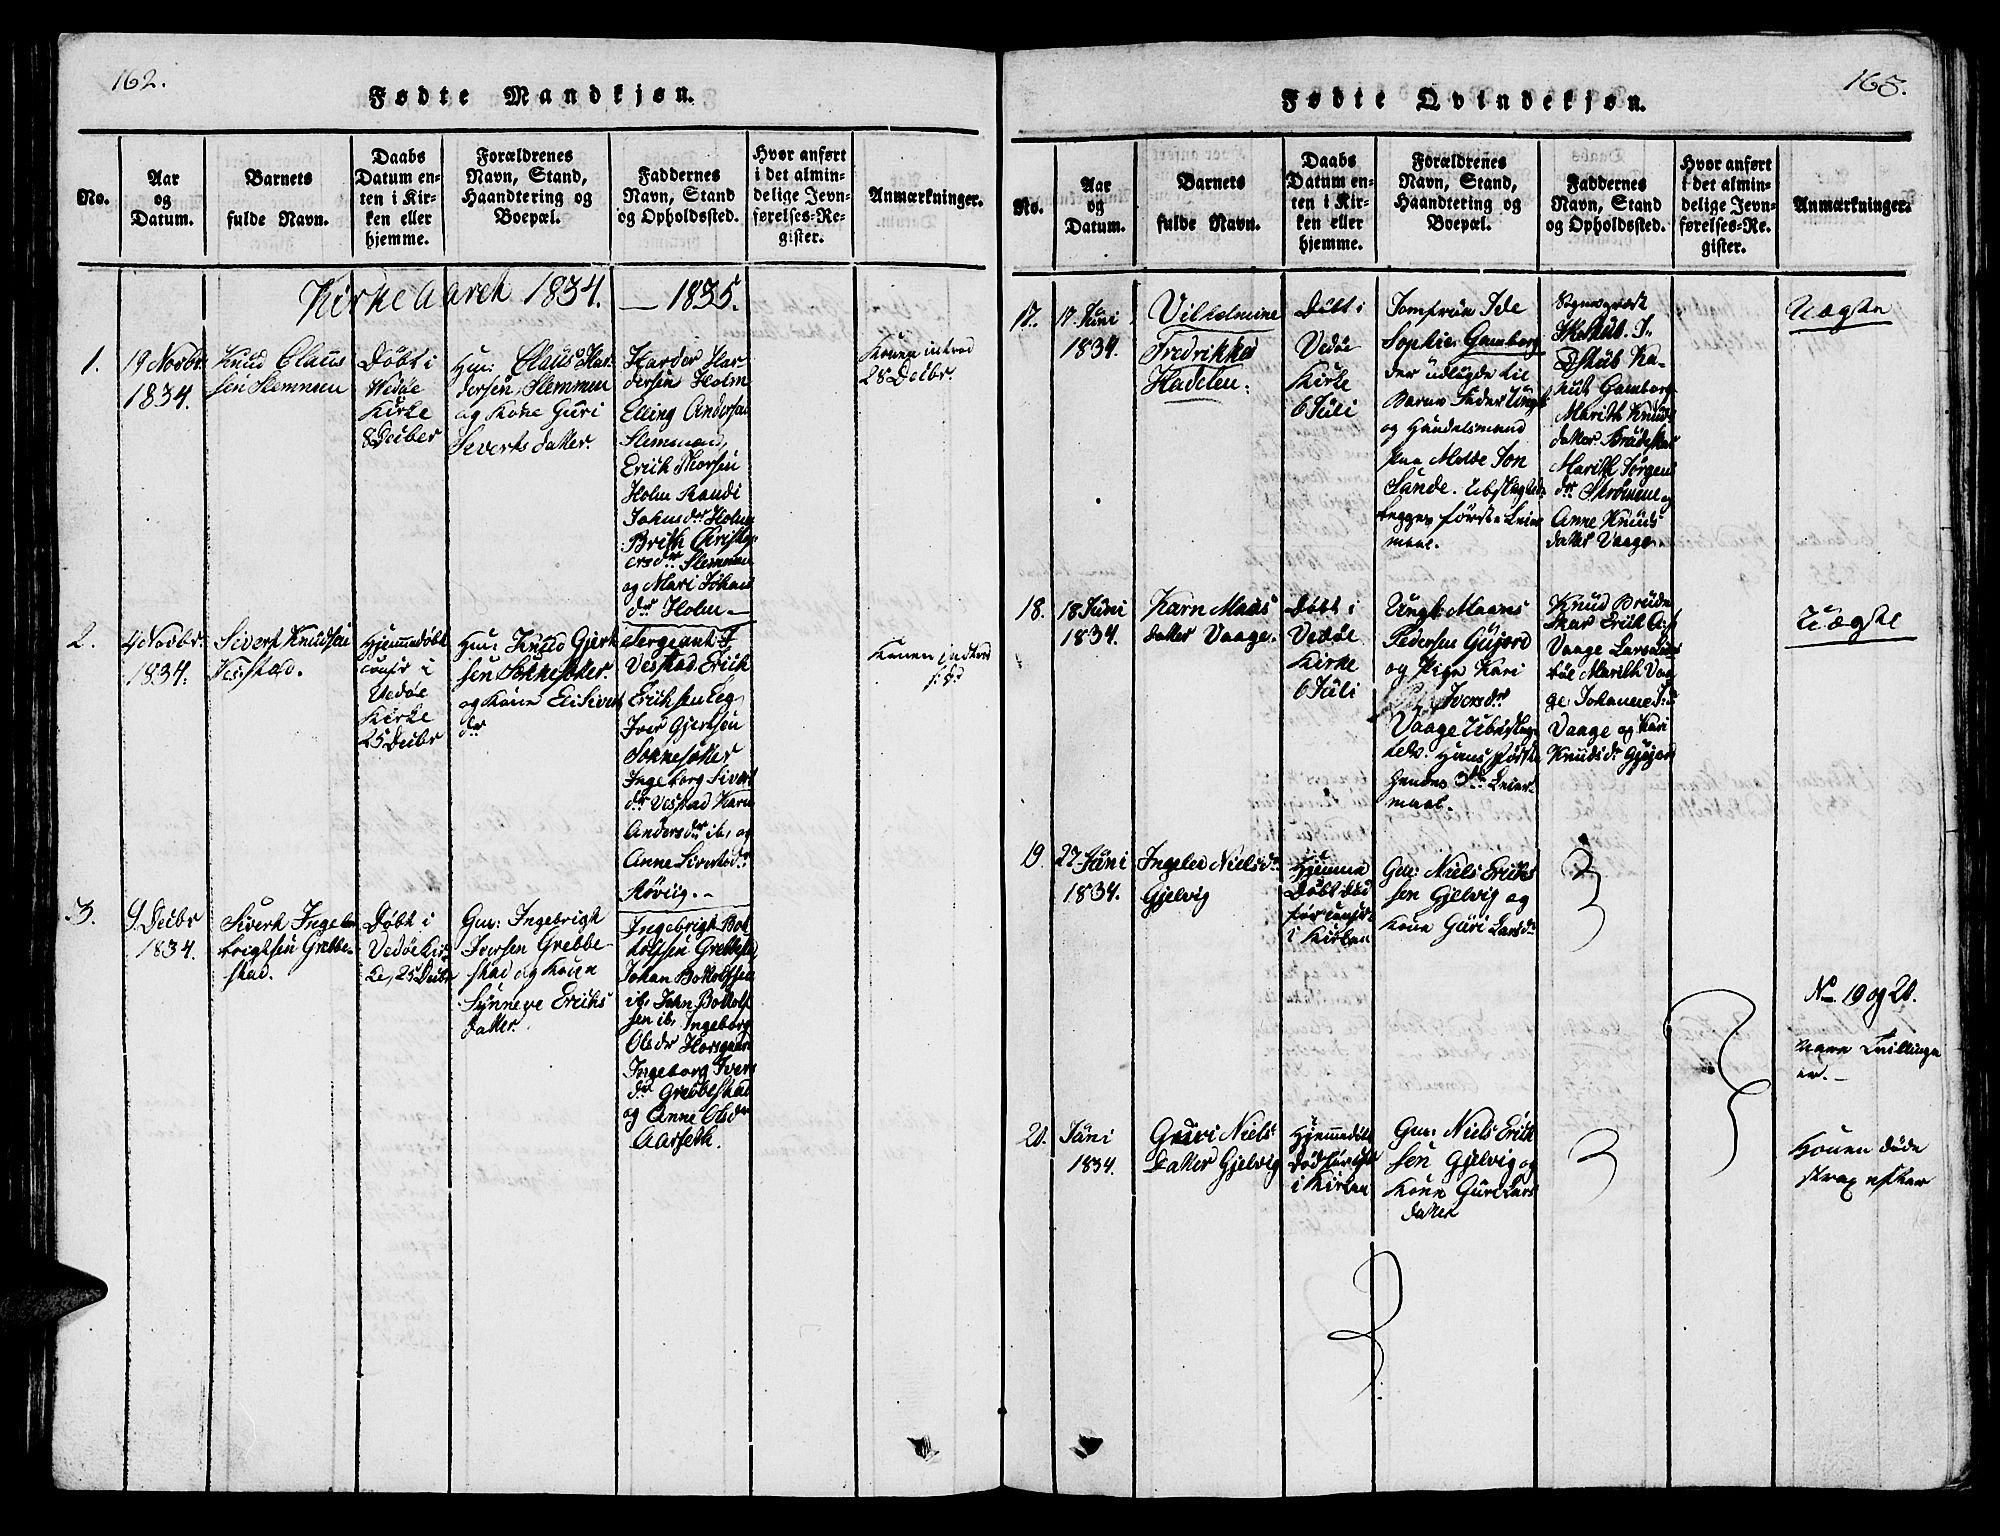 162.
Fødte Mandkjøn.
No.
Aar
og
Datum.
Barnets
fulde Navn.
Daabs
Datum en-
ten i Kir-
ken eller
hjemme.
Forældrenes
Navn, Stand,
Haandtering og
Boepæl.
Faddernes
Navn, Stand
og Opholdssted.
Hvor anført
i det almin-
delige Jevn-
førelses-Re-
gister.
Anmærkninger.
Kirkeaaret 1834. — 1835.
1.
19 Novbr.
1834.
Knud Claus
sen Slemmen
Døbt i
Vedøe
Kirke
8 Decber
Gm: Claus Har
dersen Slemmen
og Kone Guri
Siverts datter.
Harder Har
dersen Holm
Elling Andersen
Slemmen,
Erich Thorsen
Holm Randi
Johnsdr Holm
Brith Christop
ersdr Slemmen
og Mari Johans
dr Holm —
Konen introd
28 Decbr.
2.
4 Novbr.
1834.
Sivert Knudsen
Vestad.
Hjemmedøbt
confir i
Vedøe
Kirke
25 Decbr
Gm: Knud Gjert
sen Sotnesøtter.
og Kone Eli Sivert
dr
Sergeant J
Vestad Erich
Erichsen Eeg
Iver Gjertsen
Ingeborg Sivert
dr Vestad Karn
Andersdr ib, og
Anne Sivertsdr
Røviig. —
Konen introd
3.
9 Decbr
1834.
Sivert Inge
brigtsen Grebbe
stad.
Døbt i
Vedøe Kir
ke, 25 Decbr
Gm: Ingebrigt
Iversen Grebbe
stad og Konen
Synneve Erichs
datter.
Ingebrigt Bot
tolfsen Grebbestad
Johan Bottolfsen
ib, John Bottolf
sen ib, Ingeborg
Olsdr Horsgaard
Ingeborg Ivers
dr Grebbestad
og Anne Olsdr
Aarseth.
163.
Fødte Qvindekjøn.
No.
Aar
og
Datum.
Barnets
fulde Navn.
Daabs
Datum en-
ten i Kir-
ken eller
hjemme.
Forældrenes
Navn, Stand,
Haandtering og
Boepæl.
Faddernes
Navn, Stand
og Opholdssted.
Hvor anført
i det almin-
delige Jevn-
førelses-Re-
gister.
Anmærkninger.
17.
17 Juni
1834.
Vilhelmine
Fredrikke
Hadelen.
Døbt i
Vedøe
Kirke
6 Juli
Jomfrue Ide
Sophie Gamborg
der udlagde til
Barne Fader Ungk
og Handelsmand
paa Molde Jon
Sande.
begges første Leier
maal.
Gamborg
Marith Knuds
datter Brudeskar
Marith Jørgens
dr Strømme og
Anne Knuds
datter Vaage
Uægte
18.
18 Juni
1834.
Karn Mads
datter Vaage.
Døbt i
Vedøe
Kirke
6 Juli
Ungk Maans
Pedersen Gujord
og Pige Kari
Iversdr
Vaage
Hans første
hendes 3die Leier
maal.
Knud Brude
skar Erich
Vaage Lars
Marith Vaa
ge Johanne
Vaage og Kari
Knudsdr Gujord
Uægte
19.
27 Juni
1834.
Ingeleu Nielsdr
Gjelvig
Hjemme
Døbt død
før confir
i Kirken
Gm: Niels Erich
sen Gjelvig og
Kone Guri Larsdr
No 19 og 20.
vare Tvillinge
er. —
20.
Juni
1834.
Guri Niels
datter Gjelvig
Hjemmedøbt
død før
i Kirken
Gm: Niels Erich
sen Gjelvig og
Kone Guri Lars
datter
Konen døde
strax efter